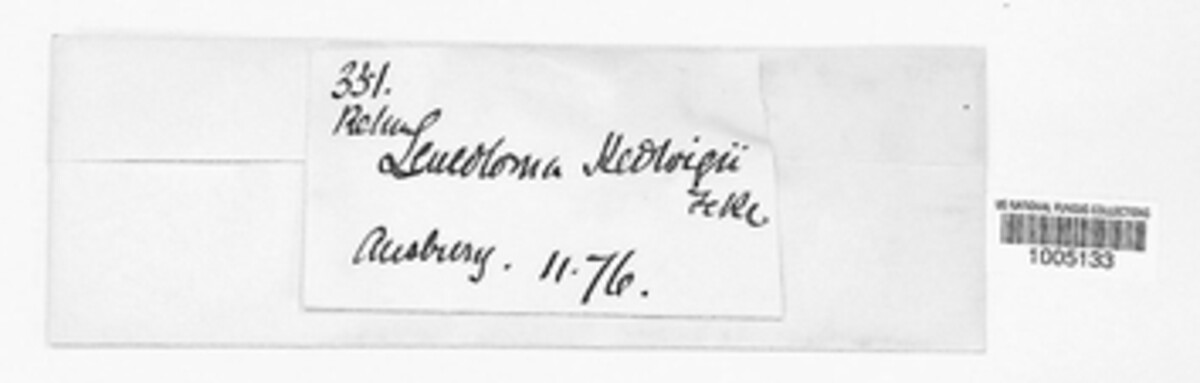 351.
Rehm
Leucoloma Hedwigii
Fckl.
Ausburg. 11.76.
US NATIONAL FUNGUS COLLECTIONS
1005133